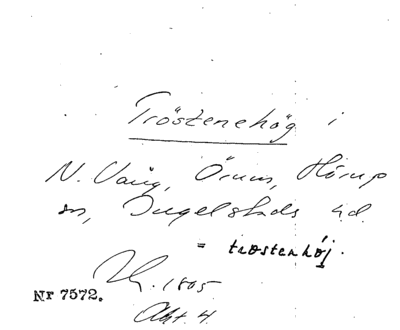 Tröstenehög i
N. Vång, Örum, Hörup
sn, Ingelstads hd.
= trostenhöj.
1805
Nr 7572.
Akt. 4.